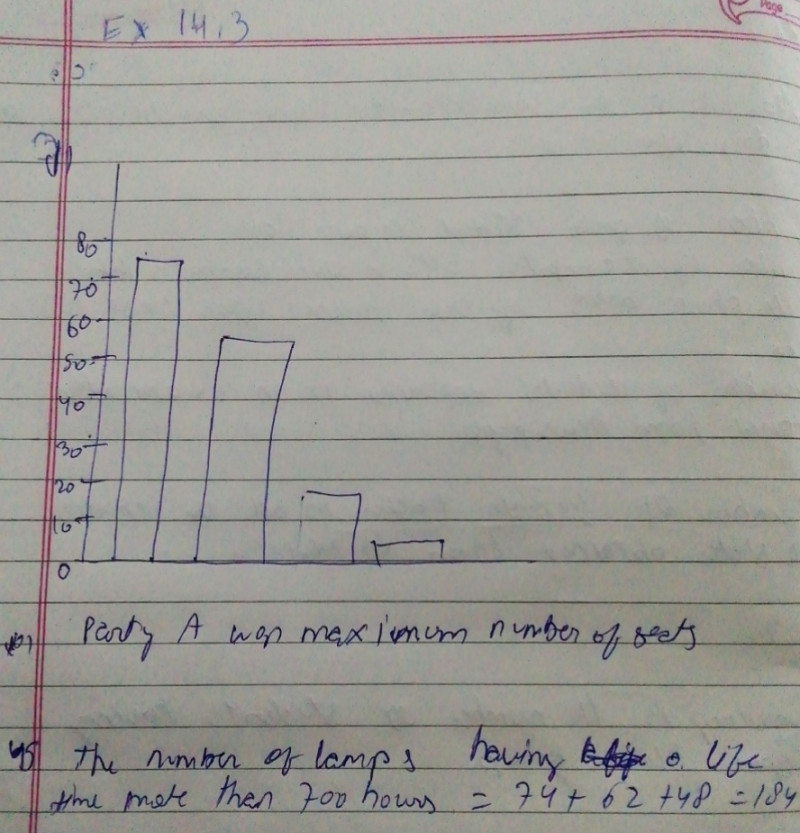 Page
Ex 14.3
80
70
60
50
40
30
20
10
0
Party A won maximum number of seats
the number of lamps having a life
time more than 700 hours = 74 + 62 + 48 = 184